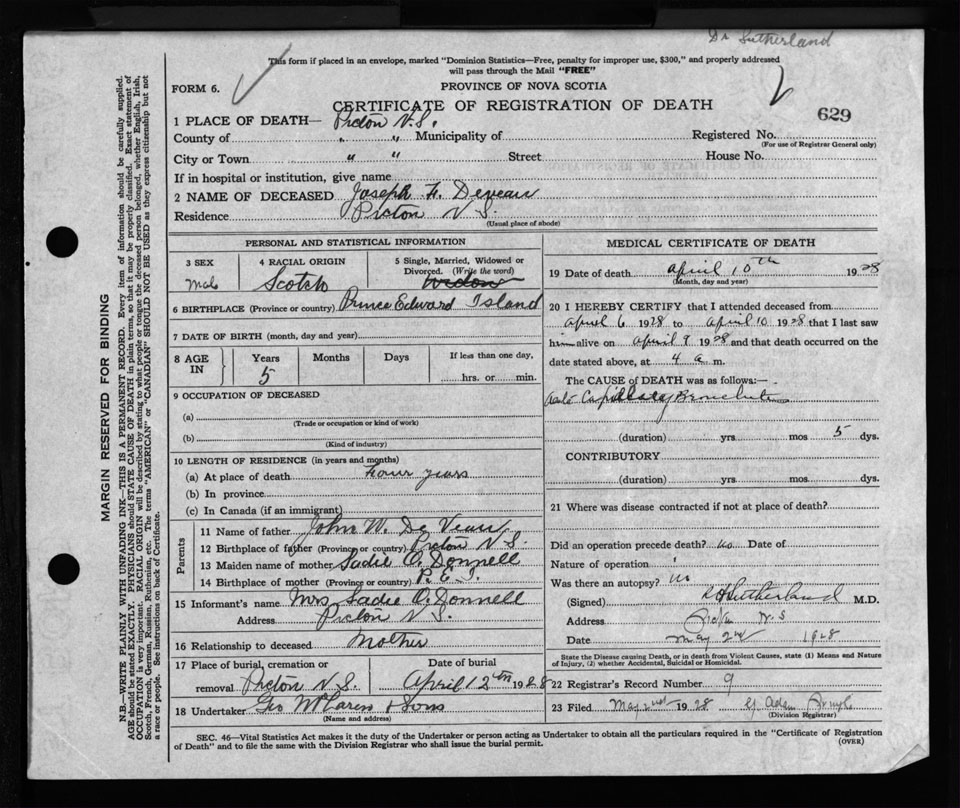 Dr Sutherland
This form if placed in an envelope, marked "Dominion Statistics—Free, penalty for improper use, $300," and properly addressed
will pass through the Mail "FREE"
FORM 6.
PROVINCE OF NOVA SCOTIA
CERTIFICATE OF REGISTRATION OF DEATH
629
1 PLACE OF DEATH— Picton N.S.
County of " " Municipality of Registered No.
(For use of Registrar General only)
City or Town " " Street House No.
If in hospital or institution, give name
2 NAME OF DECEASED Joseph F. Deveau
Residence Picton N S.
(Usual place of abode)
MARGIN RESERVED FOR BINDING
N.B.—WRITE PLAINLY WITH UNFADING INK—THIS IS A PERMANENT RECORD. Every item of information should be carefully supplied.
AGE should be stated EXACTLY. PHYSICIANS should STATE CAUSE OF DEATH in plain terms, so that it may be properly classified. Exact statement of
OCCUPATION is very important. RACIAL ORIGIN will be described by stating to what people or tongue the deceased person belonged, whether English, Irish,
Scotch, French, German, Russian, Ruthenian, etc. The terms "AMERICAN" or "CANADIAN" SHOULD NOT BE USED as they express citizenship but not
a race or people. See instructions on back of Certificate.
PERSONAL AND STATISTICAL INFORMATION
3 SEX
Male
4 RACIAL ORIGIN
Scotch
5 Single, Married, Widowed or
Divorced. (Write the word)
6 BIRTHPLACE (Province or country) Prince Edward Island
7 DATE OF BIRTH (month, day and year)
8 AGE
IN
Years
5
Months
Days
If less than one day,
hrs. or min.
9 OCCUPATION OF DECEASED
(a)
(Trade or occupation or kind of work)
(b)
(Kind of industry)
10 LENGTH OF RESIDENCE (in years and months)
(a) At place of death Four years
(b) In province
(c) In Canada (if an immigrant)
Parents
11 Name of father John W. De Veau
12 Birthplace of father (Province or country) Picton N S.
13 Maiden name of mother Sadie O. Donnell
14 Birthplace of mother (Province or country) P.E.I.
15 Informant's name Mrs Sadie O. Donnell
Address Picton N S.
16 Relationship to deceased Mother
17 Place of burial, cremation or
removal Picton N S.
Date of burial
April 12th 1928
18 Undertaker Geo McLaren & Sons
(Name and address)
MEDICAL CERTIFICATE OF DEATH
19 Date of death April 10th 1928
(Month, day and year)
20 I HEREBY CERTIFY that I attended deceased from
April 6 1928 to April 10 1928 that I last saw
him alive on April 9 1928 and that death occurred on the
date stated above, at 4 a m.
The CAUSE of DEATH was as follows:—
Acute Capillary Bronchitis
(duration) yrs mos 5 dys.
CONTRIBUTORY
(duration) yrs. mos dys.
21 Where was disease contracted if not at place of death?
Did an operation precede death? no Date of
Nature of operation
Was there an autopsy? no
(Signed) Sutherland M.D.
Address N.S
Date May 2nd 1928
State the Disease causing Death, or in death from Violent Causes, state (1) Means and Nature
of Injury, (2) whether Accidental, Suicidal or Homicidal.
22 Registrar's Record Number 9
23 Filed May 2nd 1928
(Division Registrar)
SEC. 46—Vital Statistics Act makes it the duty of the Undertaker or person acting as Undertaker to obtain all the particulars required in the "Certificate of Registration
of Death" and to file the same with the Division Registrar who shall issue the burial permit.
(OVER)